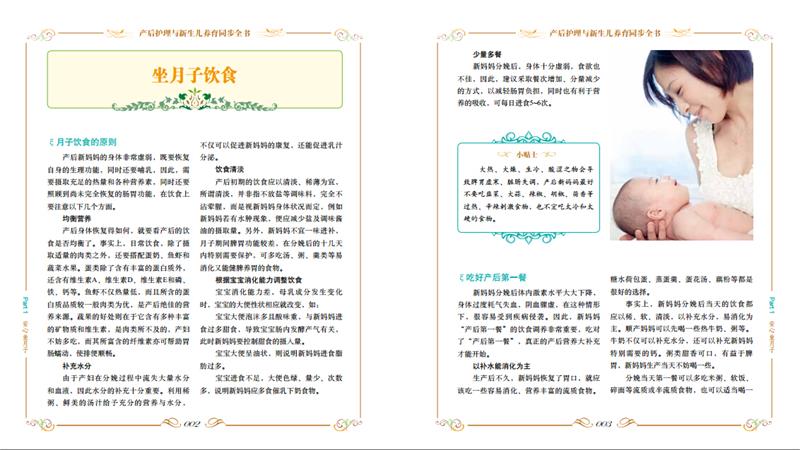 产后护理与新生儿养育同步全书
坐月子饮食
月子饮食的原则
产后新妈妈的身体非常虚弱，既要恢复
自身的生理功能，同时还要哺乳，因此，需
要摄取充足的热量和各种营养素。同时还要
照顾到尚未完全恢复的肠胃功能，在饮食上
要注意以下几个方面。
均衡营养
产后身体恢复得如何，就要看产后的饮
食是否均衡了。事实上，日常饮食，除了摄
取适量的肉类之外，还要搭配蛋类、鱼虾和
蔬菜水果。蛋类除了含有丰富的蛋白质外，
还含有维生素A、维生素D、维生素E和磷、
铁、钙等。鱼虾不仅热量低，而且所含的蛋
白质品质较一般肉类为优，是产后绝佳的营
养来源。蔬果的好处则在于它含有多种丰富
的矿物质和维生素，是肉类所不及的，产妇
不妨多吃，而其所富含的纤维素亦可帮助胃
肠蠕动，使排便顺畅。
补充水分
由于产妇在分娩过程中流失大量水分
和血液，因此水分的补充十分重要。利用稀
粥、鲜美的汤汁给予充分的营养与水分，
不仅可以促进新妈妈的康复，还能促进乳汁
分泌。
饮食清淡
产后初期的饮食应以清淡、稀薄为宜，
所谓清淡，并非指不放盐等调味料，完全不
沾荤腥，而是视新妈妈身体状况而定，例如
新妈妈若有水肿现象，便应减少盐及调味酱
油的摄取量。另外，新妈妈不宜一味进补，
月子期间脾胃功能较差，在分娩后的十几天
内特别需要保护，可多吃汤、粥、羹类等易
消化又能健脾养胃的食物。
根据宝宝消化能力调整饮食
宝宝消化能力差，母乳成分发生变化
时，宝宝的大便性状相应就改变，如：
宝宝大便泡沫多且酸味重，与新妈妈进
食过多甜食，导致宝宝肠内发酵产气有关，
此时新妈妈要控制甜食的摄入量。
宝宝大便呈油状，则说明新妈妈进食脂
肪过多。
宝宝进食不足，大便色绿、量少、次数
多，说明新妈妈应多食催乳下奶食物。
Part 1
安心坐月子
002
产后护理与新生儿养育同步全书
少量多餐
新妈妈分娩后，身体十分虚弱，食欲也
不佳，因此，建议采取餐次增加、分量减少
的方式，以减轻肠胃负担，同时也有利于营
养的吸收，可每日进食5~6次。
小贴士
大热、大燥、生冷、酸涩之物会导
致脾胃虚寒、脏腑失调，产后新妈妈最好
不要吃韭菜、大蒜、辣椒、胡椒、茴香等
过热、辛辣刺激食物，也不宜吃太冷和太
硬的食物。
吃好产后第一餐
新妈妈分娩后体内激素水平大大下降，
身体过度耗气失血，阴血骤虚，在这种情形
下，很容易受到疾病侵袭。因此，新妈妈
“产后第一餐”的饮食调养非常重要，吃对
了“产后第一餐”，真正的产后营养大补充
才能开始。
以补水能消化为主
生产后不久，新妈妈恢复了胃口，就应
该吃一些容易消化、营养丰富的流质食物。
糖水荷包蛋、蒸蛋羹、蛋花汤、藕粉等都是
很好的选择。
事实上，新妈妈分娩后当天的饮食都
应以稀、软、清淡，以补充水分，易消化为
主。顺产妈妈可以先喝一些热牛奶、粥等。
牛奶不仅可以补充水分，还可以补充新妈妈
特别需要的钙。粥类甜香可口，有益于脾
胃，新妈妈生产当天不妨喝一些。
分娩当天第一餐可以多吃米粥、软饭、
碎面等流质或半流质食物，也可以适当喝一
Part 1
安心坐月子
003